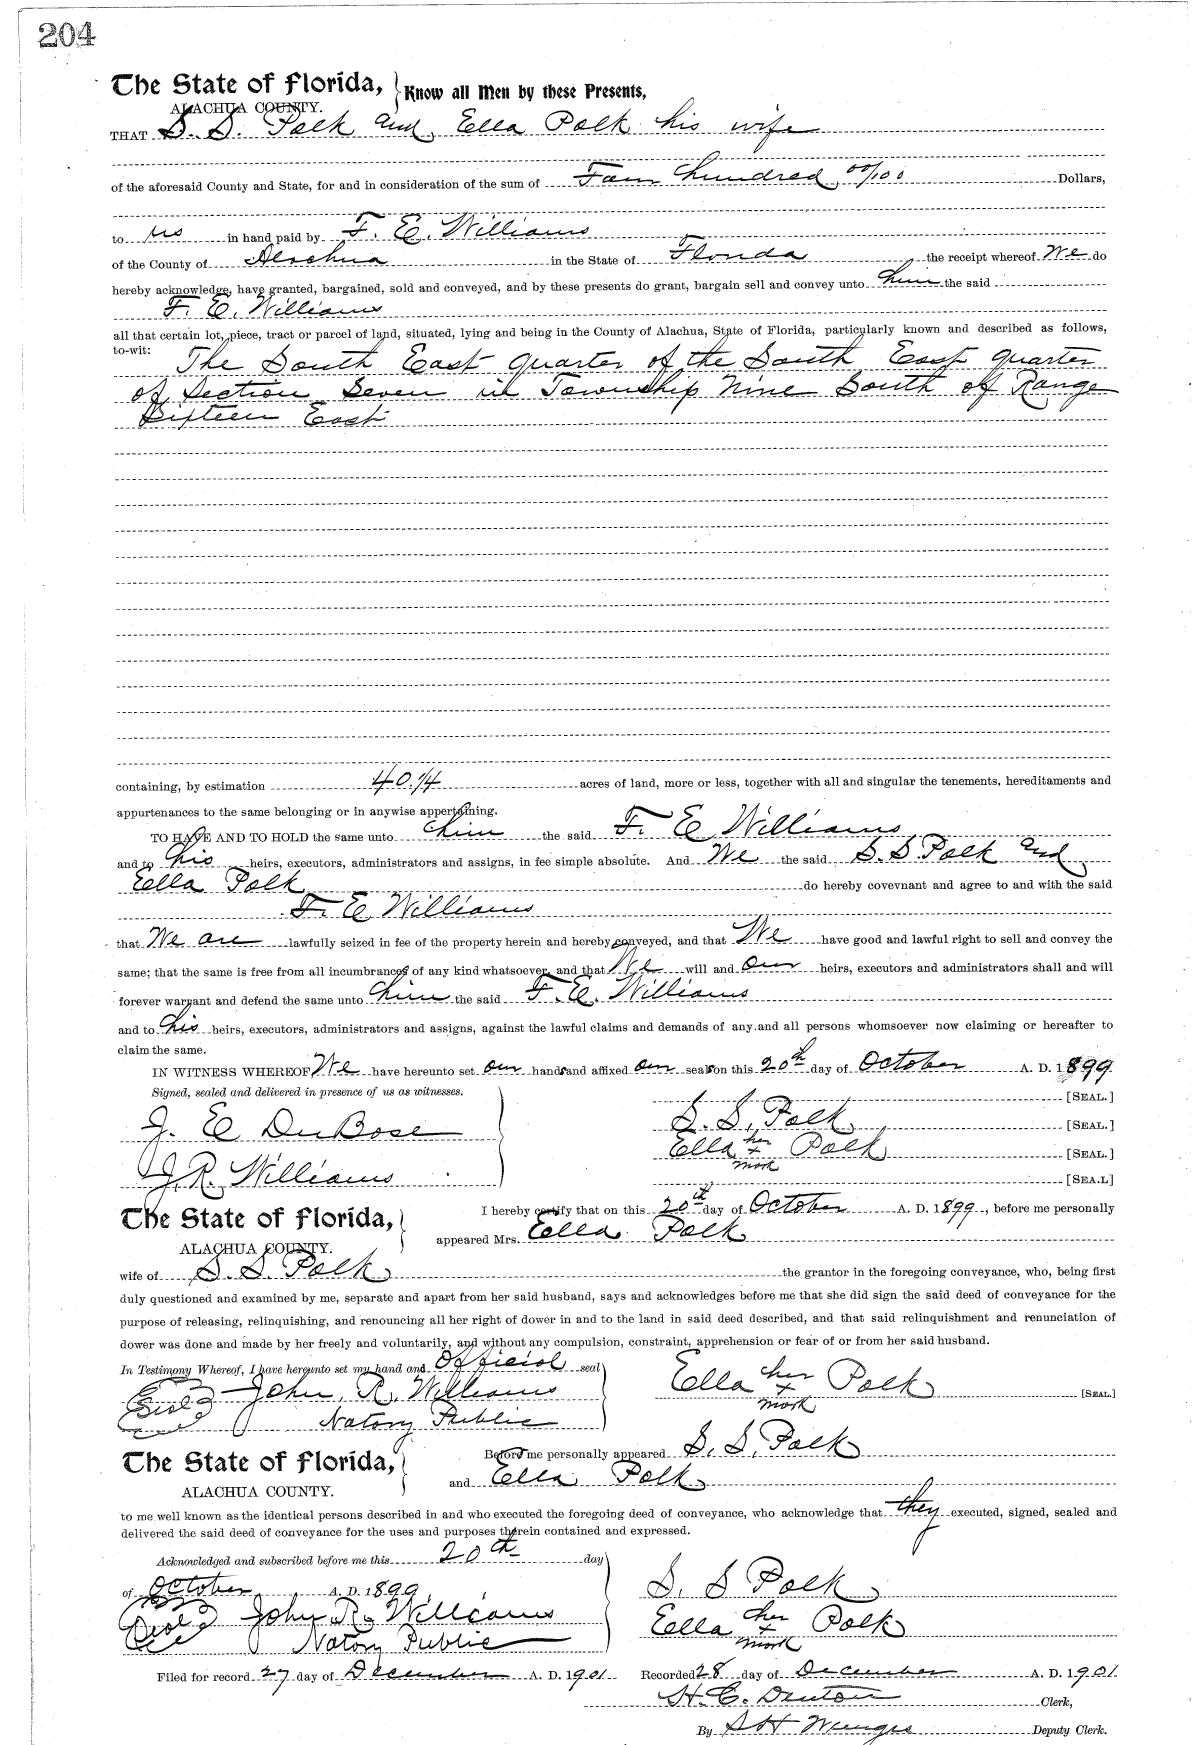 204
The State of Florida, Know all Men by these Presents,
ALACHUA COUNTY.
THAT S. S. Polk and Ella Polk his wife
of the aforesaid County and State, for and in consideration of the sum of Four hundred 00/100 Dollars,
to us in hand paid by F. E. Williams
of the County of Alachua in the State of Florida the receipt whereof We do
hereby acknowledge, have granted, bargained, sold and conveyed, and by these presents do grant, bargain sell and convey unto him the said
F. E. Williams
all that certain lot, piece, tract or parcel of land, situated, lying and being in the County of Alachua, State of Florida, particularly known and described as follows,
to-wit: The South East quarter of the South East quarter
of Section Seven in Township Nine South of Range
Sixteen East
containing, by estimation 40.14 acres of land, more or less, together with all and singular the tenements, hereditaments and
appurtenances to the same belonging or in anywise appertaining.
TO HAVE AND TO HOLD the same unto him the said F. E Williams
and to his heirs, executors, administrators and assigns, in fee simple absolute. And We the said S. S Polk and
Ella Polk do hereby covevnant and agree to and with the said
F. E Williams
that We are lawfully seized in fee of the property herein and hereby conveyed, and that We have good and lawful right to sell and convey the
same; that the same is free from all incumbrances of any kind whatsoever, and that We will and our heirs, executors and administrators shall and will
forever warrant and defend the same unto him the said F. E. Williams
and to his heirs, executors, administrators and assigns, against the lawful claims and demands of any and all persons whomsoever now claiming or hereafter to
claim the same.
IN WITNESS WHEREOF We have hereunto set our hands and affixed our seals on this 20th day of October A. D. 1899
Signed, sealed and delivered in presence of us as witnesses. [SEAL.]
J. E DuBose S. S. Polk [SEAL.]
Ella her x mark Polk [SEAL.]
J. R. Williams [SEA.L]
The State of Florida, I hereby certify that on this 20th day of October A. D. 1899, before me personally
ALACHUA COUNTY. appeared Mrs. Ella Polk
wife of S. S. Polk the grantor in the foregoing conveyance, who, being first
duly questioned and examined by me, separate and apart from her said husband, says and acknowledges before me that she did sign the said deed of conveyance for the
purpose of releasing, relinquishing, and renouncing all her right of dower in and to the land in said deed described, and that said relinquishment and renunciation of
dower was done and made by her freely and voluntarily, and without any compulsion, constraint, apprehension or fear of or from her said husband.
In Testimony Whereof, I have hereunto set my hand and official seal
Seal John R. Williams Ella her x mark Polk [SEAL.]
Notary Public
The State of Florida, Before me personally appeared S. S. Polk
ALACHUA COUNTY. and Ella Polk
to me well known as the identical persons described in and who executed the foregoing deed of conveyance, who acknowledge that they executed, signed, sealed and
delivered the said deed of conveyance for the uses and purposes therein contained and expressed.
Acknowledged and subscribed before me this 20th day
of October A. D. 1899 S. S Polk
Seal John R. Williams Ella her x mark Polk
Notary Public
Filed for record 27 day of December A. D. 1901 Recorded 28 day of December A. D. 1901
H. C. Denton Clerk,
By S H Wienges Deputy Clerk.